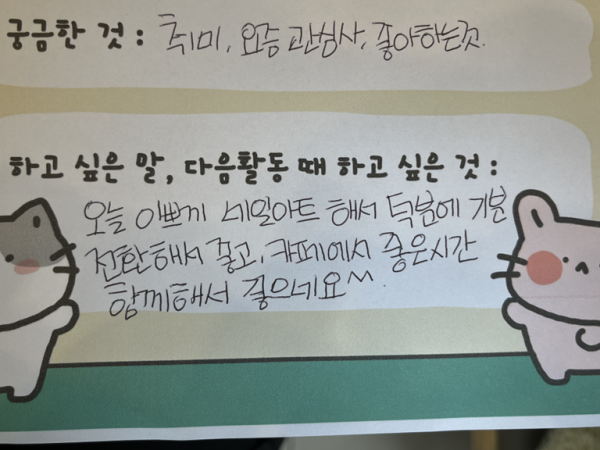 궁금한 것 : 취미, 요즘 관심사, 좋아하는것.
하고 싶은 말, 다음활동 때 하고 싶은 것 :
오늘 이쁘게 네일아트 해서 덕분에 기분
전환해서 좋고, 카페에서 좋은시간
함께해서 좋으네요^^.